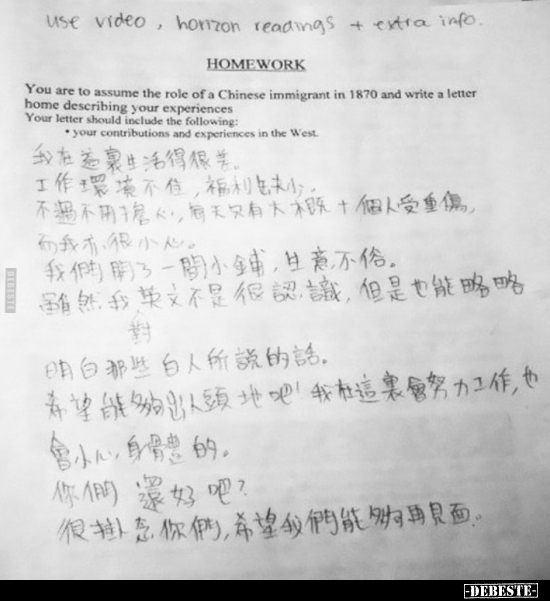 use video, horizon readings + extra info.
HOMEWORK
You are to assume the role of a Chinese immigrant in 1870 and write a letter
home describing your experiences
Your letter should include the following:
• your contributions and experiences in the West.
我在這裏生活得很差。
工作環境不佳,福利也少。
不過不用擔心,每天只有大概十個人受重傷,
而我亦很小心。
我們開了一間小鋪,生意不俗。
雖然我英文不是很認識,但是也能略略
對
明白那些白人所說的話。
希望能夠出人頭地吧!我在這裏會努力工作,也
會小心身體的。
你們還好吧?
很掛念你們,希望我們能夠再見面。
-DEBESTE-